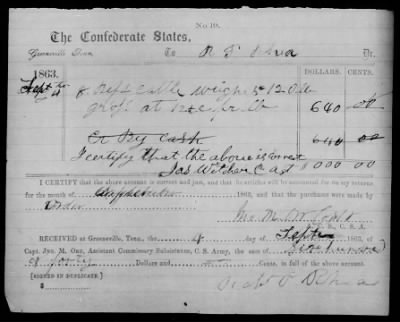 No 10.
THE CONFEDERATE STATES,
Greeneville, Tenn. To R S Rhea Dr.
1863. DOLLARS. CENTS.
Sept 4 8 Beef Cattle weighing 5120 lb
gross at 12 c pr lb 640 00
Cr By Cash 640 00
I certify that the above is correct
$ 000 00
I CERTIFY that the above account is correct and just, and that the articles will be accounted for on my returns
for the month of September 1863, and that the purchases were made by
order
C. S. A.
RECEIVED at Greeneville, Tenn., the 4 day of Sept 1863, of
Capt. Jno. M. Orr, Assistant Commissary Subsistence, C. S. Army, the sum of Six hundred
& forty Dollars and Cents, in full of the above account.
[SIGNED IN DUPLICATE.]
$